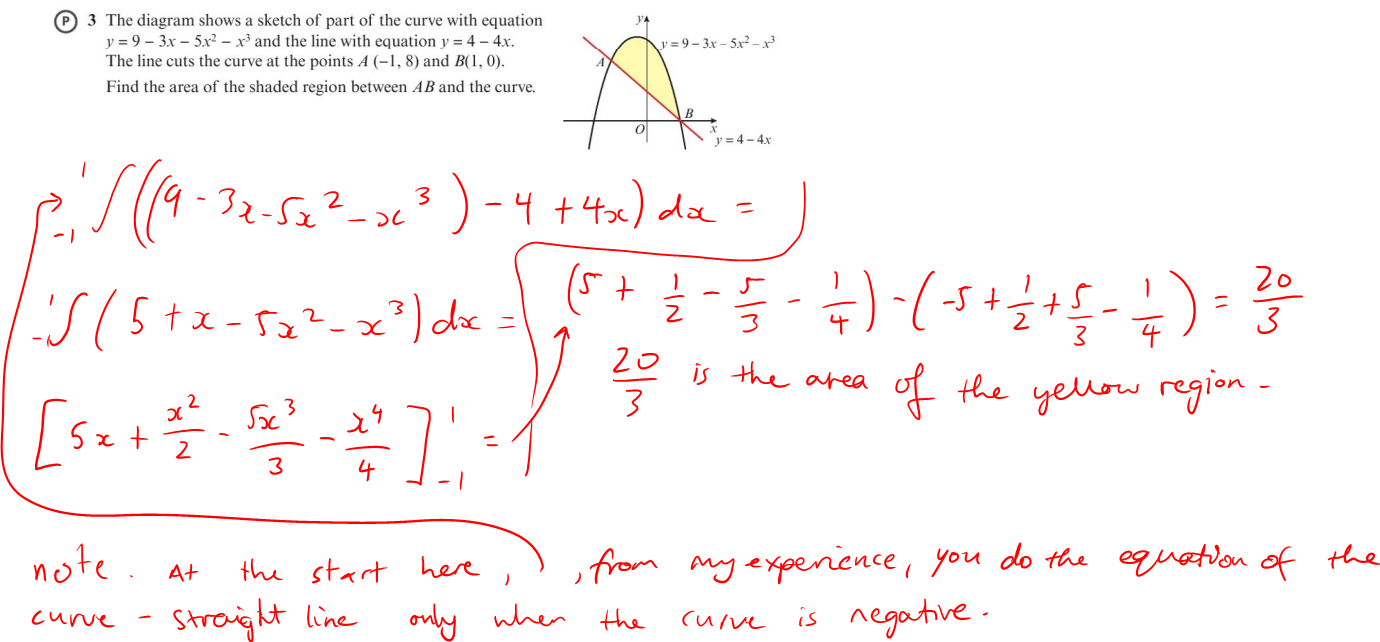 P 3 The diagram shows a sketch of part of the curve with equation
y = 9 – 3x – 5x² – x³ and the line with equation y = 4 – 4x.
The line cuts the curve at the points A (–1, 8) and B(1, 0).
Find the area of the shaded region between AB and the curve.
y
y = 9 – 3x – 5x² – x³
A
B
O
x
y = 4 – 4x
₋₁¹∫((9 - 3x - 5x² - x³) - 4 + 4x) dx =
₋₁¹∫(5 + x - 5x² - x³) dx =
[5x + x²/2 - 5x³/3 - x⁴/4]¹₋₁ =
(5 + 1/2 - 5/3 - 1/4) - (-5 + 1/2 + 5/3 - 1/4) = 20/3
20/3 is the area of the yellow region.
note. At the start here, , from my experience, you do the equation of the
curve - straight line only when the curve is negative.